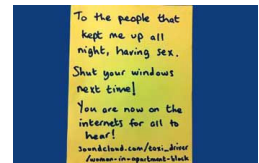 To the people that
kept me up all
night, having sex.
Shut your windows
next time!
You are now on the
internets for all to
hear!
soundcloud.com/taxi_driver
/woman-in-apartment-block